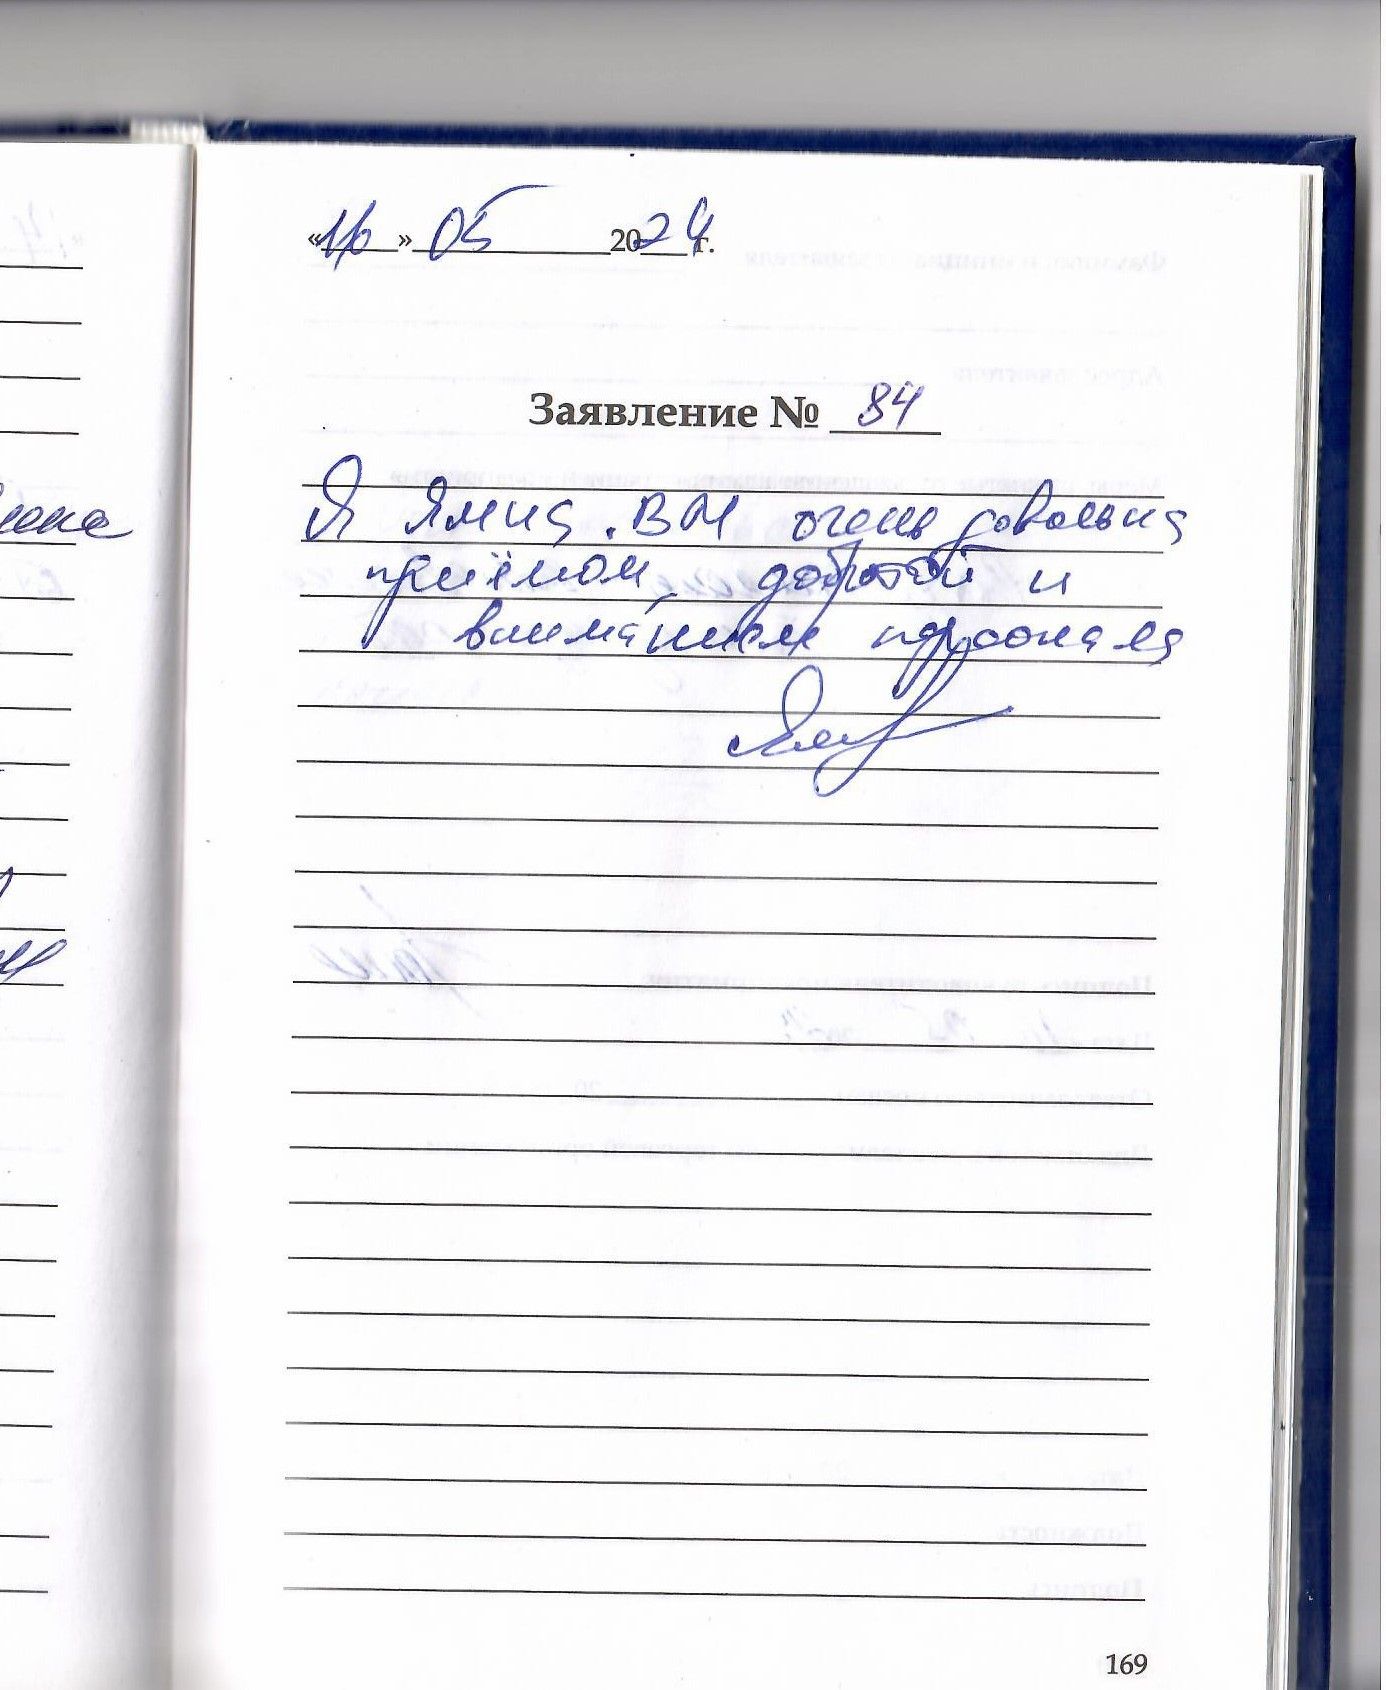 «16» 05 2024 г.
Заявление № 84
Я Ямщ. ВМ очень довольна
приёмом, добротой и
вниманием персонала
169